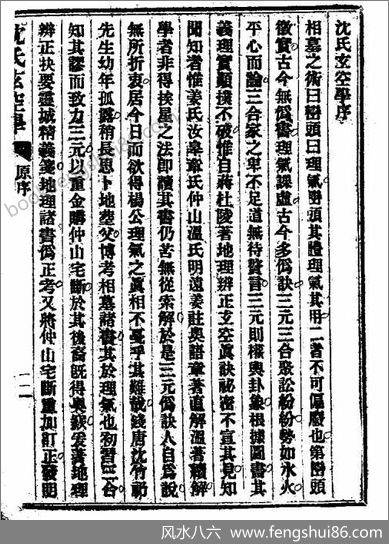 沈氏玄空學序
相墓之術曰巒頭曰理氣巒頭其體理氣其用二者不可偏廢也第巒頭
徵實古今無僞書理氣課虛古今多僞訣三元三合聚訟紛紛勢如氷火
平心而論三合家之卑不足道無待贅言三元則權輿卦象根據圖書其
義理實顚撲不破惟自蔣杜陵著地理辨正玄空眞訣祕密不宣其見知
聞知者惟姜氏汝皋章氏仲山溫氏明遠姜註奧語章著直解溫著續解
學者非得挨星之法卽讀其書仍苦無從索解於是三元僞訣人自爲說
無所折衷居今日而欲得楊公理氣之眞相不戞乎其難哉錢唐沈竹礽
先生幼年孤露稍長思卜地葬父博考相墓諸書其於理氣也初習三合
知其謬而致力三元以重金購仲山宅斷於其後裔旣得奧窾爰著地理
辨正抉要靈城精義箋地理諸書僞正考又將仲山宅斷重加訂正發明
沈氏玄空學
原序
一
风水八六 – www.fengshui86.com